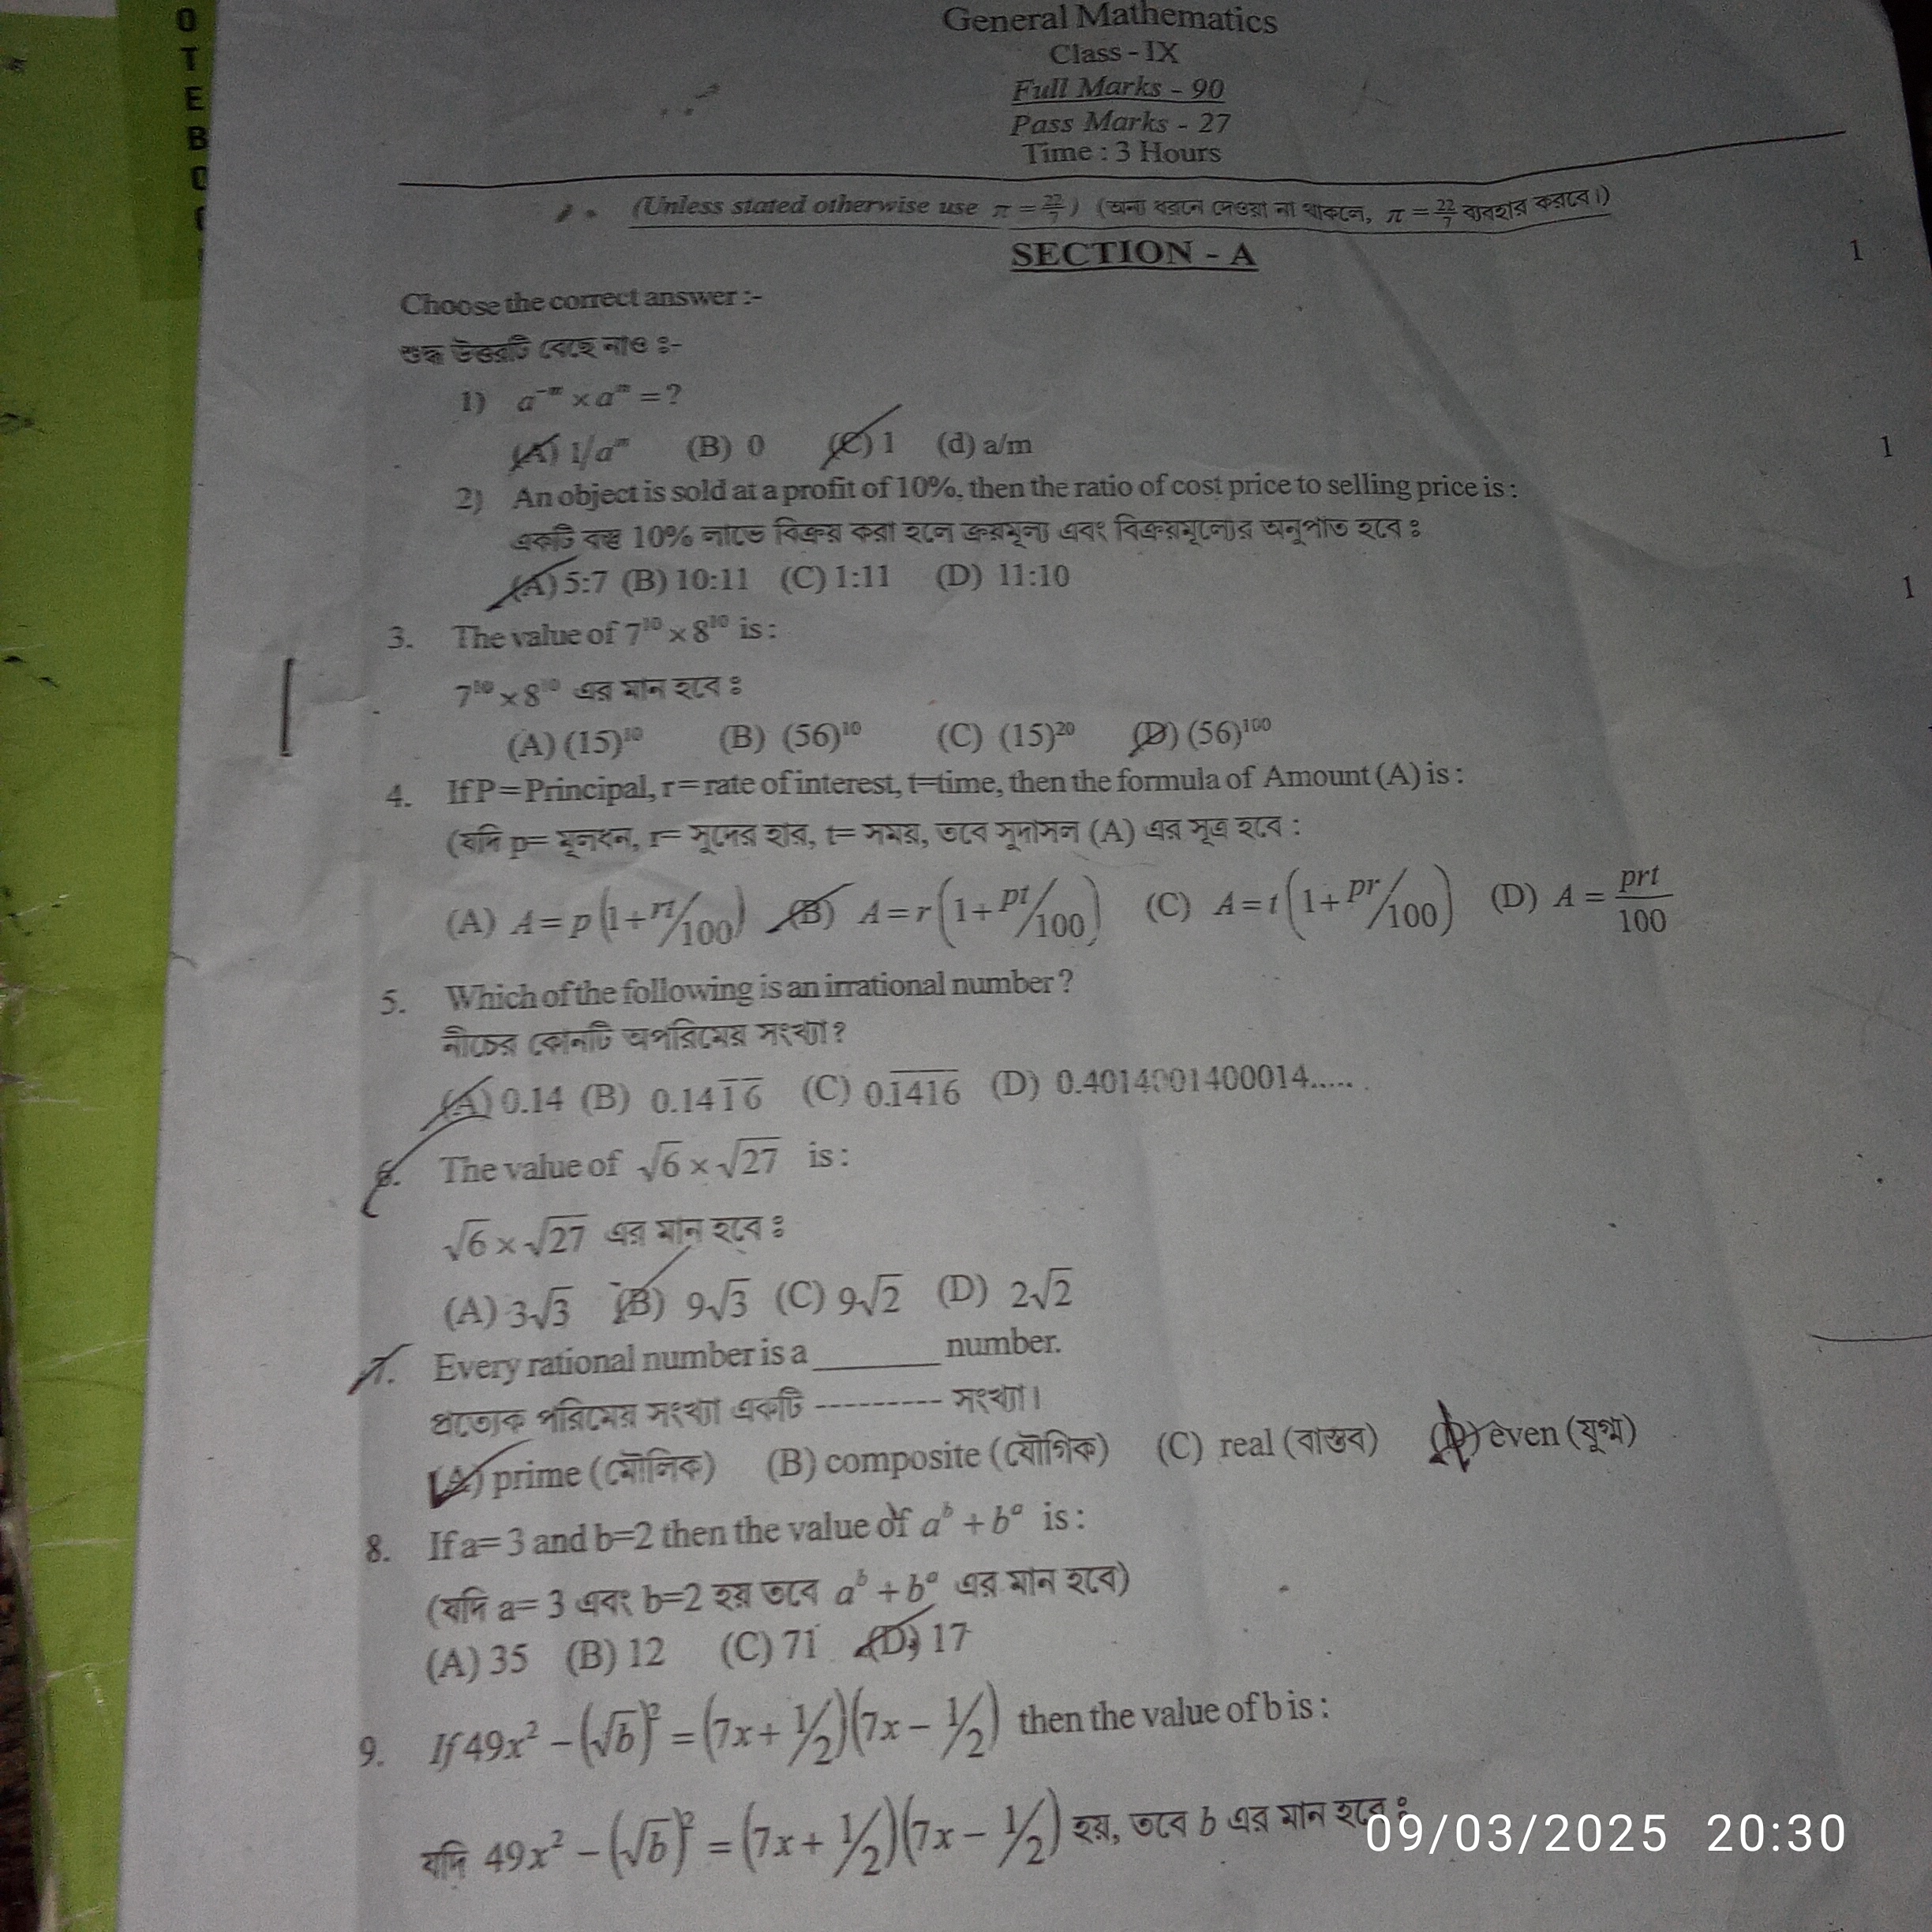 O
T
E
B
O
General Mathematics
Class - IX
Full Marks - 90
Pass Marks - 27
Time : 3 Hours
(Unless stated otherwise use π = 22/7) (অন্য ধরনে দেওয়া না থাকলে, π = 22/7 ব্যবহার করবে।)
SECTION - A
1
Choose the correct answer :-
শুদ্ধ উত্তরটি বেছে নাও ঃ-
1) a⁻ᵐ × aᵐ = ?
(A) 1/aᵐ (B) 0 (C) 1 (d) a/m
1
2) An object is sold at a profit of 10%, then the ratio of cost price to selling price is :
একটি বস্তু 10% লাভে বিক্রয় করা হলে ক্রয়মূল্য এবং বিক্রয়মূল্যের অনুপাত হবে ঃ
(A) 5:7 (B) 10:11 (C) 1:11 (D) 11:10
1
3. The value of 7¹⁰ × 8¹⁰ is :
7¹⁰ × 8¹⁰ এর মান হবে ঃ
(A) (15)¹⁰ (B) (56)¹⁰ (C) (15)²⁰ (D) (56)¹⁰⁰
4. If P=Principal, r=rate of interest, t=time, then the formula of Amount (A) is :
(যদি p= মূলধন, r= সূদের হার, t= সময়, তবে সূদাসল (A) এর সূত্র হবে :
(A) A = p(1+rt/100) (B) A = r(1+pt/100) (C) A = t(1+pr/100) (D) A = prt/100
5. Which of the following is an irrational number ?
নীচের কোনটি অপরিমেয় সংখ্যা?
(A) 0.14 (B) 0.141̅6̅ (C) 0.1̅4̅1̅6̅ (D) 0.4014001400014.....
6. The value of √6 × √27 is :
√6 × √27 এর মান হবে ঃ
(A) 3√3 (B) 9√3 (C) 9√2 (D) 2√2
7. Every rational number is a ______ number.
প্রত্যেক পরিমেয় সংখ্যা একটি --------- সংখ্যা।
(A) prime (মৌলিক) (B) composite (যৌগিক) (C) real (বাস্তব) (D) even (যুগ্ম)
8. If a= 3 and b=2 then the value of aᵇ + bᵃ is :
(যদি a= 3 এবং b=2 হয় তবে aᵇ + bᵃ এর মান হবে)
(A) 35 (B) 12 (C) 71 (D) 17
9. If 49x² − (√b)² = (7x + 1/2)(7x − 1/2) then the value of b is :
যদি 49x² − (√b)² = (7x + 1/2)(7x − 1/2) হয়, তবে b এর মান হবে ঃ
09/03/2025 20:30